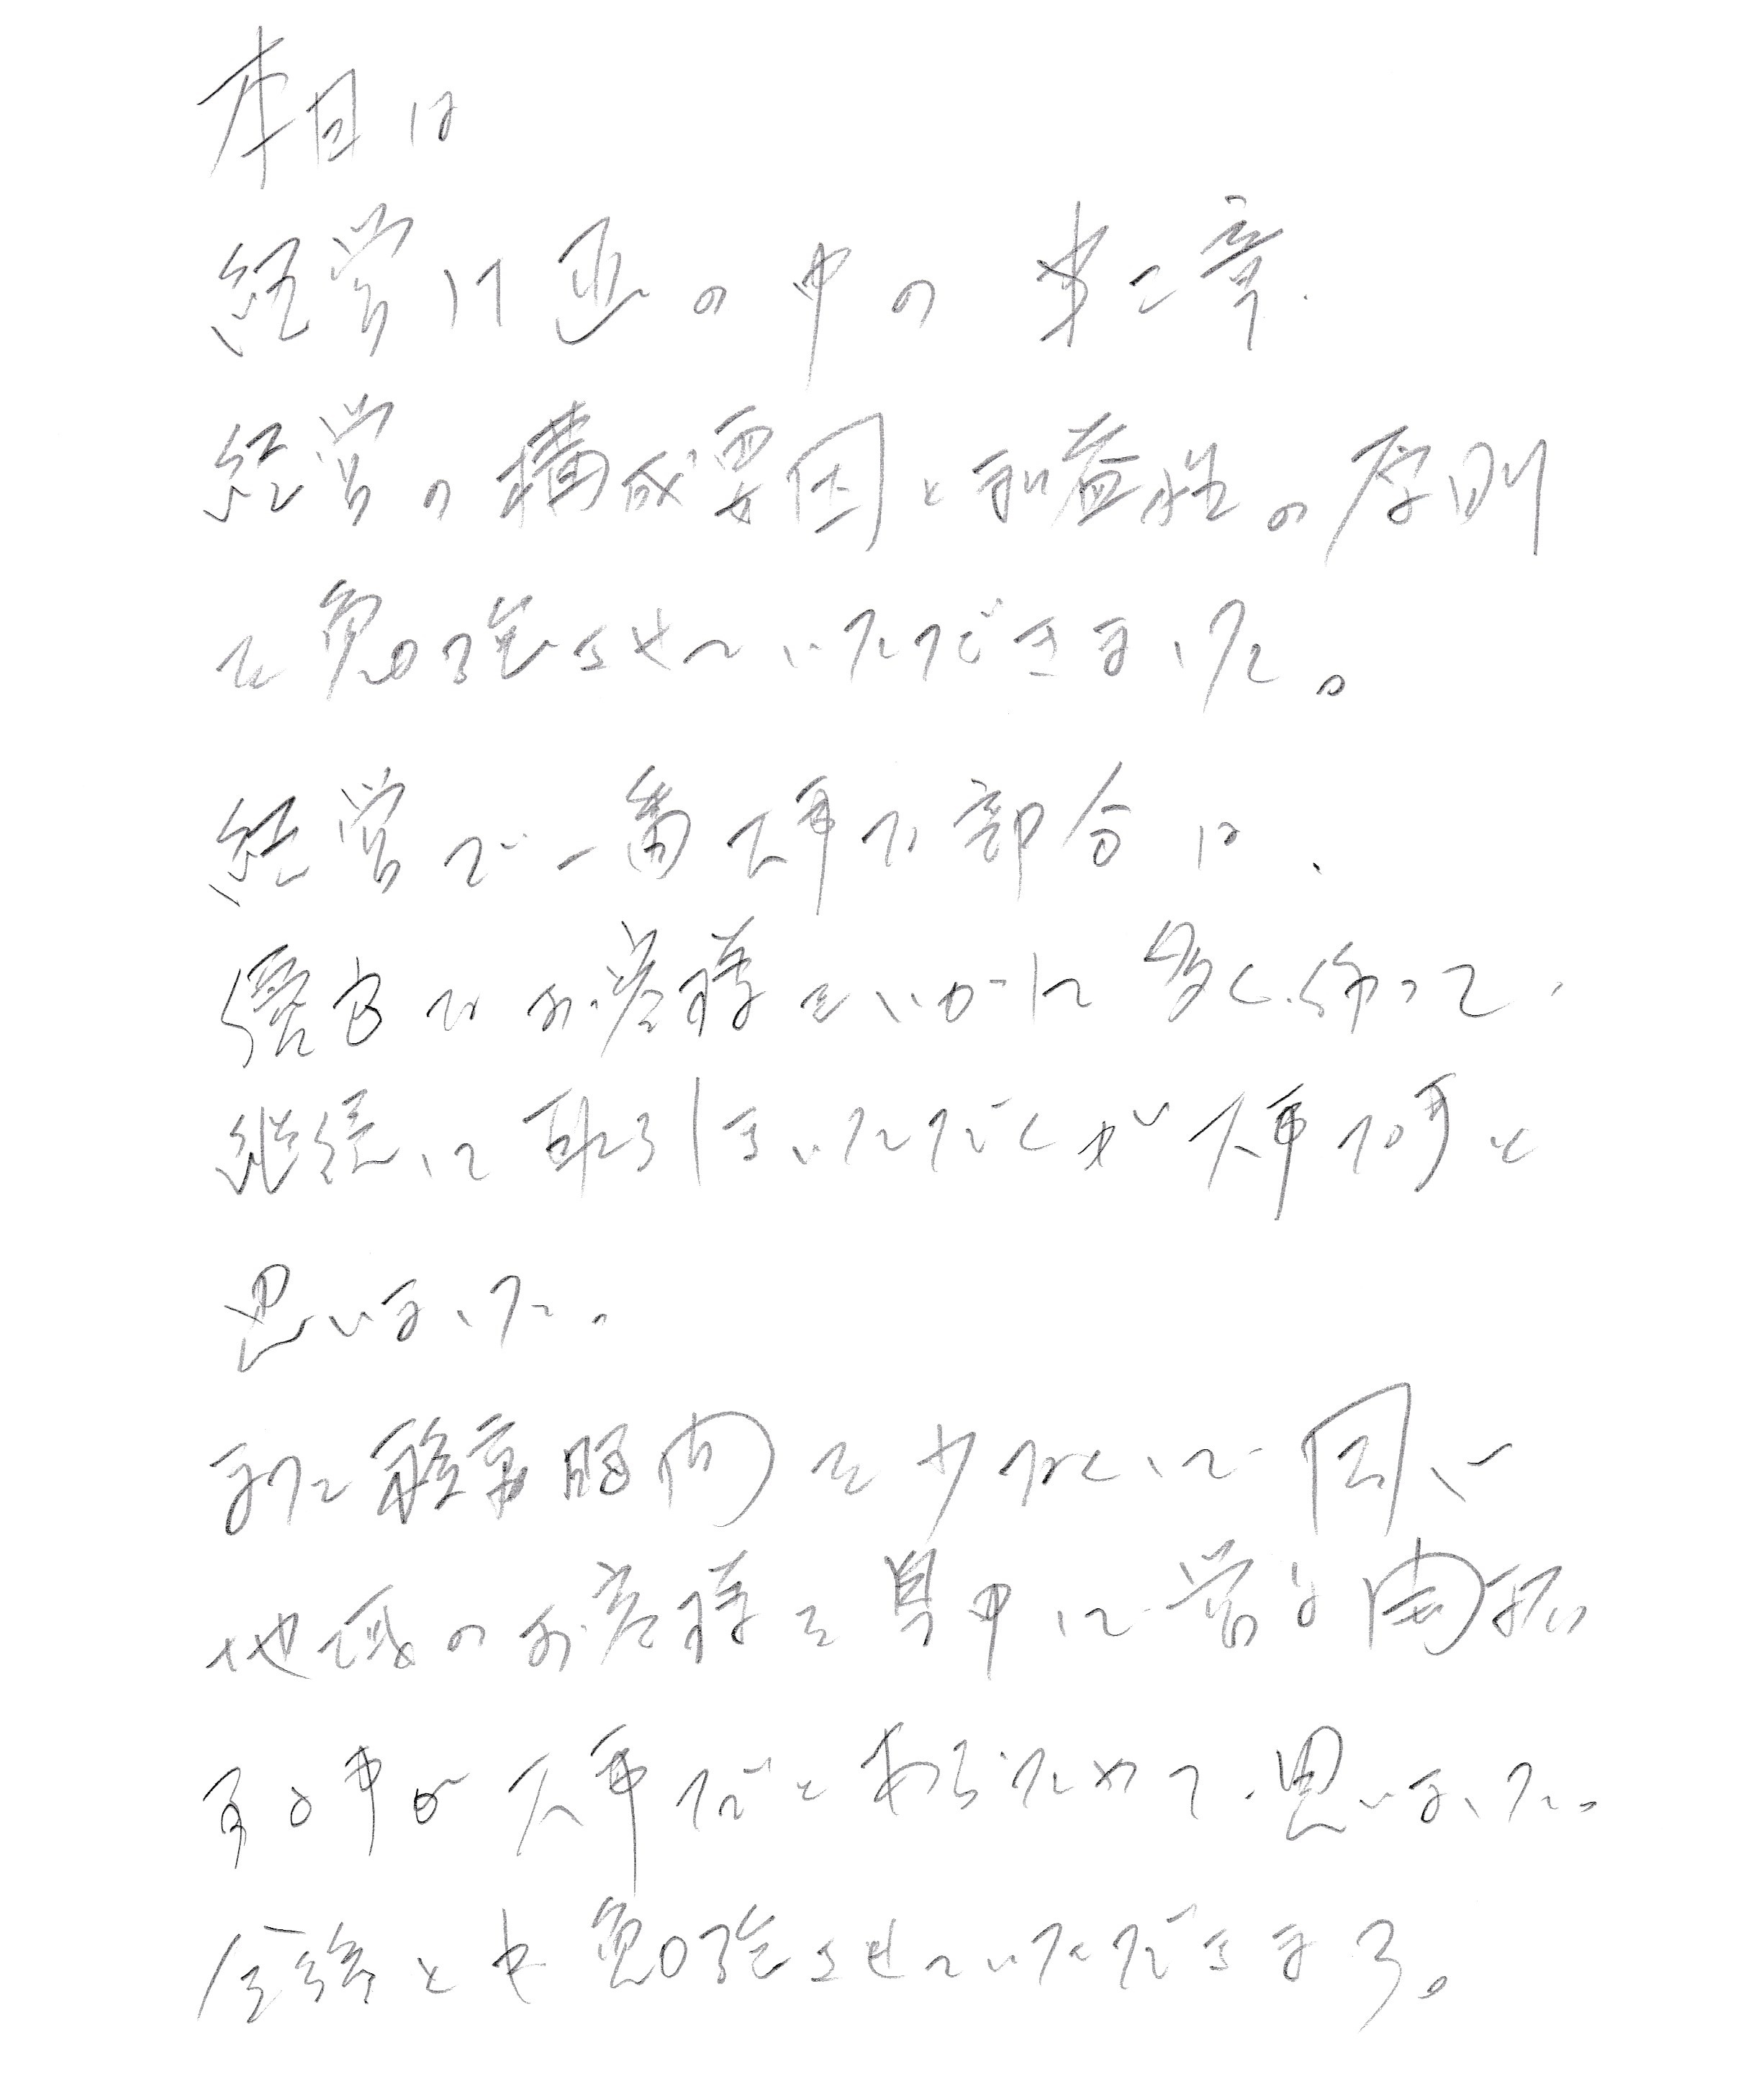 本日は
経営計画の中の第二章
経営の構成要因と利益性の原則
を勉強させていただきました。
経営で一番大事な部分は、
優良なお客様をいかに多く作って、
継続に取引きいただくが大事な事と
思いました。
また移動時間を少なくして同じ
地域のお客様を集中して営業開拓
する事が大事だとあらためて思いました。
今後とも勉強させていただきます。